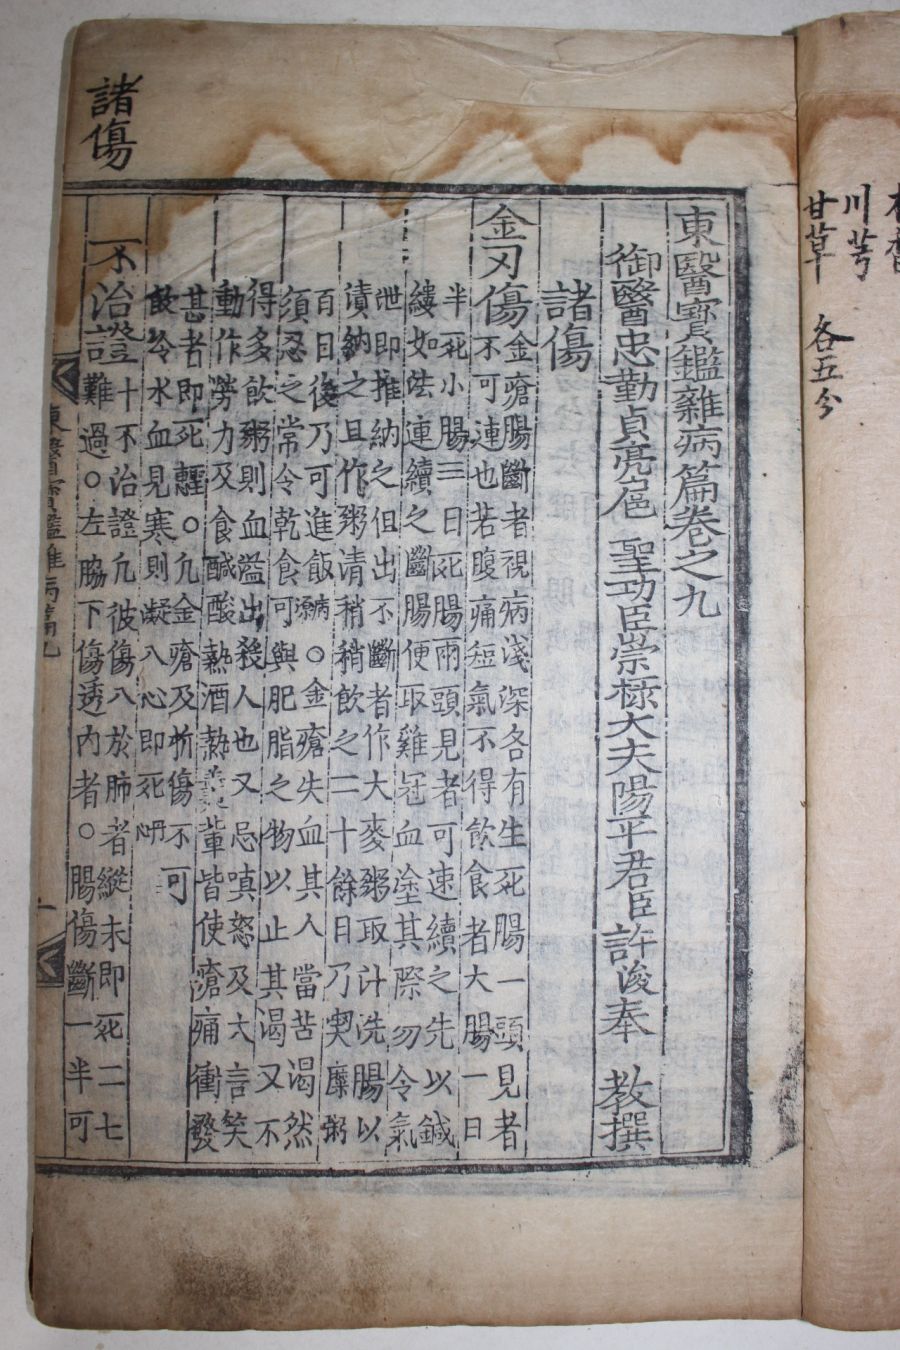 川芎
甘草 各五分
諸傷
東醫寶鑑雜病篇卷之九
御醫忠勤貞亮扈 聖功臣崇祿大夫陽平君臣許浚奉 教撰
諸傷
金刃傷
金瘡腸斷者視病淺深各有生死腸一頭見者
不可連也若腹痛短氣不得飮食者大腸一日
半死小腸三日死腸兩頭見者可速續之先以鍼
縷如法連續之斷腸便取雞冠血塗其際勿令氣
泄即推納之但出不斷者作大麥粥取汁洗腸以
漬納之且作粥清稍稍飮之二十餘日乃喫糜粥
百日後乃可進飯病源○金瘡失血其人當苦渴然
須忍之常令乾食可與肥脂之物以止其渴又不
得多飮粥則血溢出殺人也又忌嗔怒及大言笑
動作勞力及食醎酸熱酒熱羹輩皆使瘡痛衝發
甚者即死○凡金瘡及折傷不可
飮冷水血見寒則凝入心即死
不治證
十不治證凡彼傷入於肺者縱未即死二七
難過○左脇下傷透內者○腸傷斷一半可
東醫寶鑑雜病篇九 一